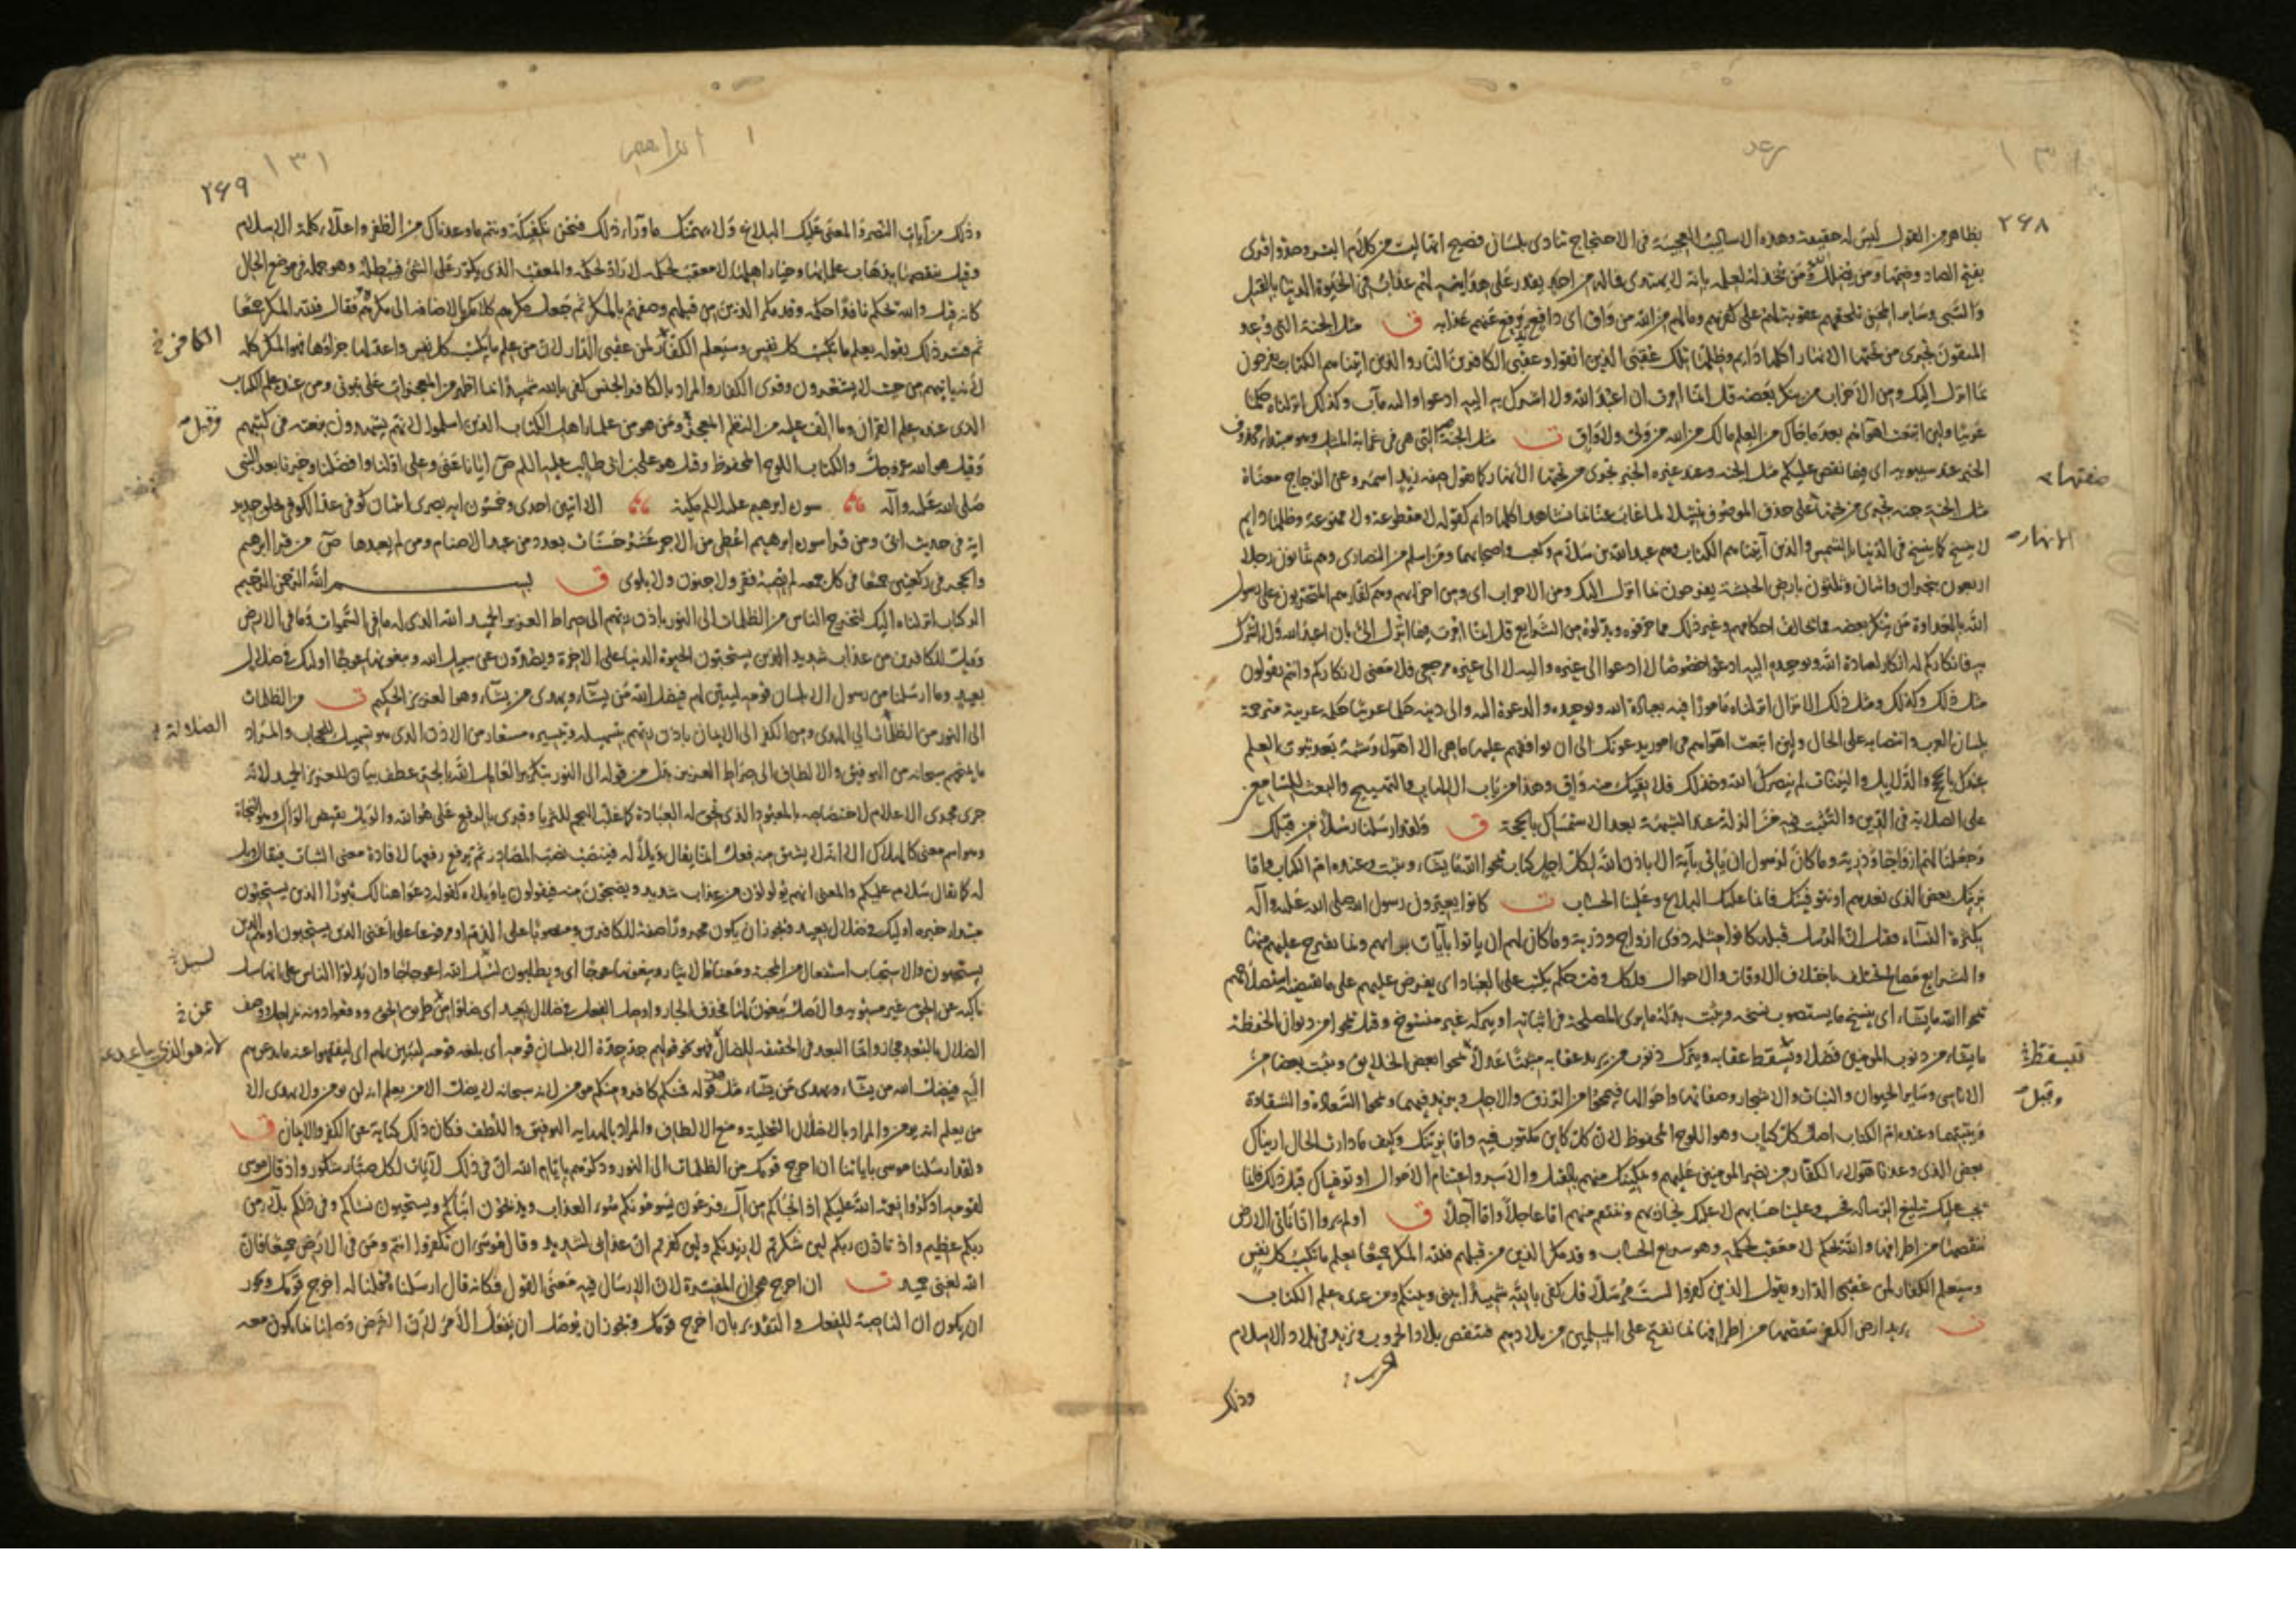 رعد
۲۶۸
بظاهر من القول ليس له حقيقة وهذه الاساليب العجيبة في الاحتجاج تنادى بلسان فصيح انها ليست من كلام البشر وصدوا قرى
بفتح الصاد وضمها ومن يضلل الله ومن يخذله لعلمه بانه لا يهتدى فما له من احد يقدر على هدايته لهم عذاب في الحيوة الدنيا بالقتل
والسبى وساير المحن تلحقهم عقوبة لهم على كفرهم وما لهم من الله من واق اى دافع يدفع عنهم عذابه ق مثل الجنة التى وعد
المتقون تجرى من تحتها الانهار اكلها دايم وظلها تلك عقبى الذين اتقوا وعقبى الكافرين النار والذين اتيناهم الكتاب يفرحون
بما انزل اليك ومن الاحزاب من ينكر بعضه قل انما امرت ان اعبد الله ولا اشرك به اليه ادعوا واليه مآب وكذلك انزلناه حكما
عربيا ولئن اتبعت اهواءهم بعد ما جاك من العلم ما لك من الله من ولى ولا واق ت مثل الجنة التى هى في غرابة المثل وهو مبتداء محذوف
صفتها
الخبر عند سيبويه اى فيما نقص عليكم مثل الجنة وعند غيره الخبر تجرى من تحتها الأنهار كما تقول صفة زيد اسمر وعن الزجاج معناه
مثل الجنة جنة تجرى من تحتها على حذف الموصوف تمثيلا لما غاب عنا بما نشاهد اكلها دايم كقوله لا مقطوعة ولا ممنوعة وظلها دايم
الانهار
لا ينسخ كما ينسخ في الدنيا بالشمس والذين آتيناهم الكتاب وهم عبد الله بن سلام وكعب واصحابهما ومن اسلم من النصارى وهم ثمانون رجلا
اربعون بنجران واثنان وثلثون بارض الحبشة يفرحون بما انزل اليك ومن الاحزاب اى ومن احزابهم وهم كفارهم المتحزبون على رسول
الله بالعداوة من ينكر بعضه مما يخالف احكامهم وغير ذلك مما حرفوه وبدلوه من الشرايع قل انما امرت فيما انزل الى بان اعبد الله ولا اشرك
به فانكاركم له انكار لعبادة الله وتوحيده اليه ادعوا خصوصا لا ادعوا الى غيره واليه لا الى غيره مرجعى فلا معنى لانكاركم وانتم تقولون
مثل ذلك وكذلك ومثل ذلك الانزال انزلناه مامورا فيه بعبادة الله وتوحيده والدعوة اليه والى دينه حكما عربيا حكمة عربية مترجمة
بلسان العرب وانتصابه على الحال ولئن اتبعت اهواءهم في امور يدعونك الى ان توافقهم عليها ما هى الا اهواء وشبه بعد ثبوت العلم
عندك بالحجج والدلايل والبينات لم ينصرك الله وخذلك فلا يقيك منه واق وهذا من باب الالهاب والتهييج والبعث للسامع
على الصلابة في الدين والتثبت فيه من الزلة عند الشبهة بعد الاستمساك بالحجة ق ولقد ارسلنا رسلا من قبلك
وجعلنا لهم ازواجا وذرية وما كان لرسول ان ياتى بآية الا باذن الله لكل اجل كتاب يمحوا الله ما يشاء ويثبت وعنده ام الكتاب واما
نرينك بعض الذى نعدهم او نتوفينك فانما عليك البلاغ وعلينا الحساب ت كانوا يعيبون رسول الله صلى الله عليه وآله
بكثرة النساء فقال ان الرسل قبله كانوا مثله ذوى ازواج وذرية وما كان لهم ان ياتوا بآيات برايهم وبما يقترح عليهم منها
والشرايع مصالح تختلف باختلاف الاوقات والاحوال ولكل وقت حكم يكتب على العباد اى يفرض عليهم على ما يقتضيه استصلاحهم
يمحوا الله ما يشاء اى ينسخ ما يستصوب نسخه ويثبت بدله ما يرى المصلحة في اثباته او يتركه غير منسوخ وقيل يمحوا من ديوان الحفظة
ما يشاء من ذنوب المومنين فضلا ويسقط عقابه ويترك ذنوب من يريد عقابه مثبتا عدلا يمحوا بعض الخلايق ويثبت بعضا من
فيسقط
وقيل
الاناسى وساير الحيوان والنبات والاشجار وصفاتها واحوالها فيمحوا من الرزق والاجل ويزيد فيهما ويمحوا السعادة والشقاوة
ويثبتهما وعنده ام الكتاب اصل كل كتاب وهو اللوح المحفوظ لان كل كاين مكتوب فيه واما نرينك وكيف ما دارت الحال اريناك
بعض الذى وعدنا هؤلاء الكفار من نصر المومنين عليهم وتمكينك منهم بالقتل والاسر واغتنام الاموال او توفيناك قبل ذلك فانما
يجب عليك تبليغ الرسالة فحسب وعلينا حسابهم لا عليك نجازيهم وننتقم منهم اما عاجلا واما آجلا ق اولم يروا انا ناتى الارض
ننقصها من اطرافها والله يحكم لا معقب لحكمه وهو سريع الحساب وقد مكر الذين من قبلهم فلله المكر جميعا يعلم ما تكسب كل نفس
وسيعلم الكفار لمن عقبى الدار ويقول الذين كفروا لست مرسلا قل كفى بالله شهيدا بينى وبينكم ومن عنده علم الكتاب
ت يريد ارض الكفر ننقصها من اطرافها بما نفتح على المسلمين من بلادهم فننقص بلاد الحروب ونزيد في بلاد الاسلام
وذلك
ابراهيم
۱۳۱
۲۶۹
وذلك من آيات النصرة والمعنى عليك البلاغ ولا يهمنك ما وراء ذلك فنحن نكفيكه ونتم ما وعدناك من الظفر واعلاء كلمة الاسلام
وقيل ننقصها بذهاب علمائها وخيار اهلها لا معقب لحكمه لا راد لحكمه والمعقب الذى يكر على الشئ فيبطله وهو جملة في موضع الحال
كانه قيل والله يحكم نافذا حكمه وقد مكر الذين من قبلهم وصفهم بالمكر ثم جعل مكرهم كلا مكر بالاضافة الى مكره فقال فلله المكر جميعا
ثم فسر ذلك بقوله يعلم ما تكسب كل نفس وسيعلم الكفار لمن عقبى الدار لان من علم ما تكسب كل نفس واعد لها جزاؤها فهو المكر كله
الكافر خ
لأنه ياتيهم من حيث لا يشعرون وقرى الكفار والمراد بالكافر الجنس كفى بالله شهيدا لما اظهر من المعجزات على نبوتى ومن عنده علم الكتاب
الذى عنده علم القرآن وما الف عليه من النظم المعجز ومن هو من علماء اهل الكتاب الذين اسلموا لانهم يشهدون بنعته في كتبهم
وقيل
وقيل هو الله عز وجل والكتاب اللوح المحفوظ وقيل هو على بن ابى طالب عليه السلم ص ايانا عنى وعلى اولنا وافضلنا وخيرنا بعد النبى
صلى الله عليه وآله سورة ابرهيم عليه السلم مكية الا ايتين احدى وخمسون اية بصرى اثنان كوفى عد الكوفى بخلق جديد
اية في حديث ابى ومن قرا سورة ابرهيم اعطى من الاجر عشر حسنات بعدد من عبد الاصنام ومن لم يعبدها ص من قرا ابرهيم
والحجر في ركعتين جميعا في كل جمعة لم يصبه فقر ولا جنون ولا بلوى ق بسم الله الرحمن الرحيم
الر كتاب انزلناه اليك لتخرج الناس من الظلمات الى النور باذن ربهم الى صراط العزيز الحميد الله الذى له ما في السموات وما في الارض
وويل للكافرين من عذاب شديد الذين يستحبون الحيوة الدنيا على الاخرة ويصدون عن سبيل الله ويبغونها عوجا اولئك في ضلال
بعيد وما ارسلنا من رسول الا بلسان قومه ليبين لهم فيضل الله من يشاء ويهدى من يشاء وهو العزيز الحكيم ت من الظلمات
الى النور من الظلمات الى الهدى ومن الكفر الى الايمان باذن ربهم بتسهيله وتيسيره مستعار من الاذن الذى هو تسهيل للحجاب والمراد
الضلالة
ما يمنحهم سبحانه من التوفيق والالطاف الى صراط العزيز بدل من قوله الى النور بتكرير العامل الله بالجر عطف بيان للعزيز الحميد لانه
جرى مجرى الاعلام لاختصاصه بالمعبود الذى تحق له العبادة كما غلب النجم للثريا وقرى بالرفع على هو الله والويل نقيض الوأل وهو النجاة
وهو اسم معنى كالهلاك الا انه لا يشتق منه فعل انما يقال ويلا له فينصب نصب المصادر ثم يرفع رفعها لافادة معنى الثبات فيقال ويل
له كما يقال سلام عليكم والمعنى انهم يولولون من عذاب شديد ويضجون منه فيقولون يا ويلاه كقوله دعوا هنالك ثبورا الذين يستحبون
مبتداء خبره اوليك في ضلال بعيد ويجوز ان يكون مجرورا صفة للكافرين ومنصوبا على الذم او مرفوعا على اعنى الذين يستحبون او هم الذين
يستحبون والاستحباب استفعال من المحبة ومعناه الايثار ويبغونها عوجا اى ويطلبون لسبيل الله اعوجاجا وان يدلوا الناس على انها سبيل
لسبيل
ناكبة عن الحق غير مستوية والاصل يبغون لها فحذف الجار واوصل الفعل في ضلال بعيد اى ضلوا من طريق الحق ووقعوا دونه بمراحل ووصف
عن خ
الضلال بالبعد مجازا وانما البعد في الحقيقة للضال فهو نحو قولهم جد جده الا بلسان قومه أى بلغة قومه ليبين لهم اى ليفقهوا عنه ما يدعوهم
لانه هو الذى يتباعد عن
اليه فيضل الله من يشاء ويهدى من يشاء مثل قوله فمنكم كافر ومنكم مومن لانه سبحانه لا يضل الا من يعلم انه لن يومن ولا يهدى الا
من يعلم انه يومن والمراد بالاضلال التخلية ومنع الالطاف والمراد بالهداية التوفيق واللطف فكان ذلك كناية عن الكفر والايمان ق
ولقد ارسلنا موسى باياتنا ان اخرج قومك من الظلمات الى النور وذكرهم بايام الله ان في ذلك لآيات لكل صبار شكور واذ قال موسى
لقومه اذكروا نعمة الله عليكم اذ انجاكم من آل فرعون يسومونكم سوء العذاب ويذبحون ابناكم ويستحيون نساكم وفي ذلكم بلاء من
ربكم عظيم واذ تاذن ربكم لين شكرتم لازيدنكم ولين كفرتم ان عذابى لشديد وقال موسى ان تكفروا انتم ومن في الارض جميعا فان
الله لغنى حميد ت ان اخرج هى ان المفسرة لان الارسال فيه معنى القول فكانه قال ارسلناه وقلنا له اخرج قومك ويجوز
ان يكون ان الناصبة للفعل والتقدير بان اخرج قومك ويجوز ان يوصل ان بفعل الأمر لان الغرض وصلها بما يكون معه